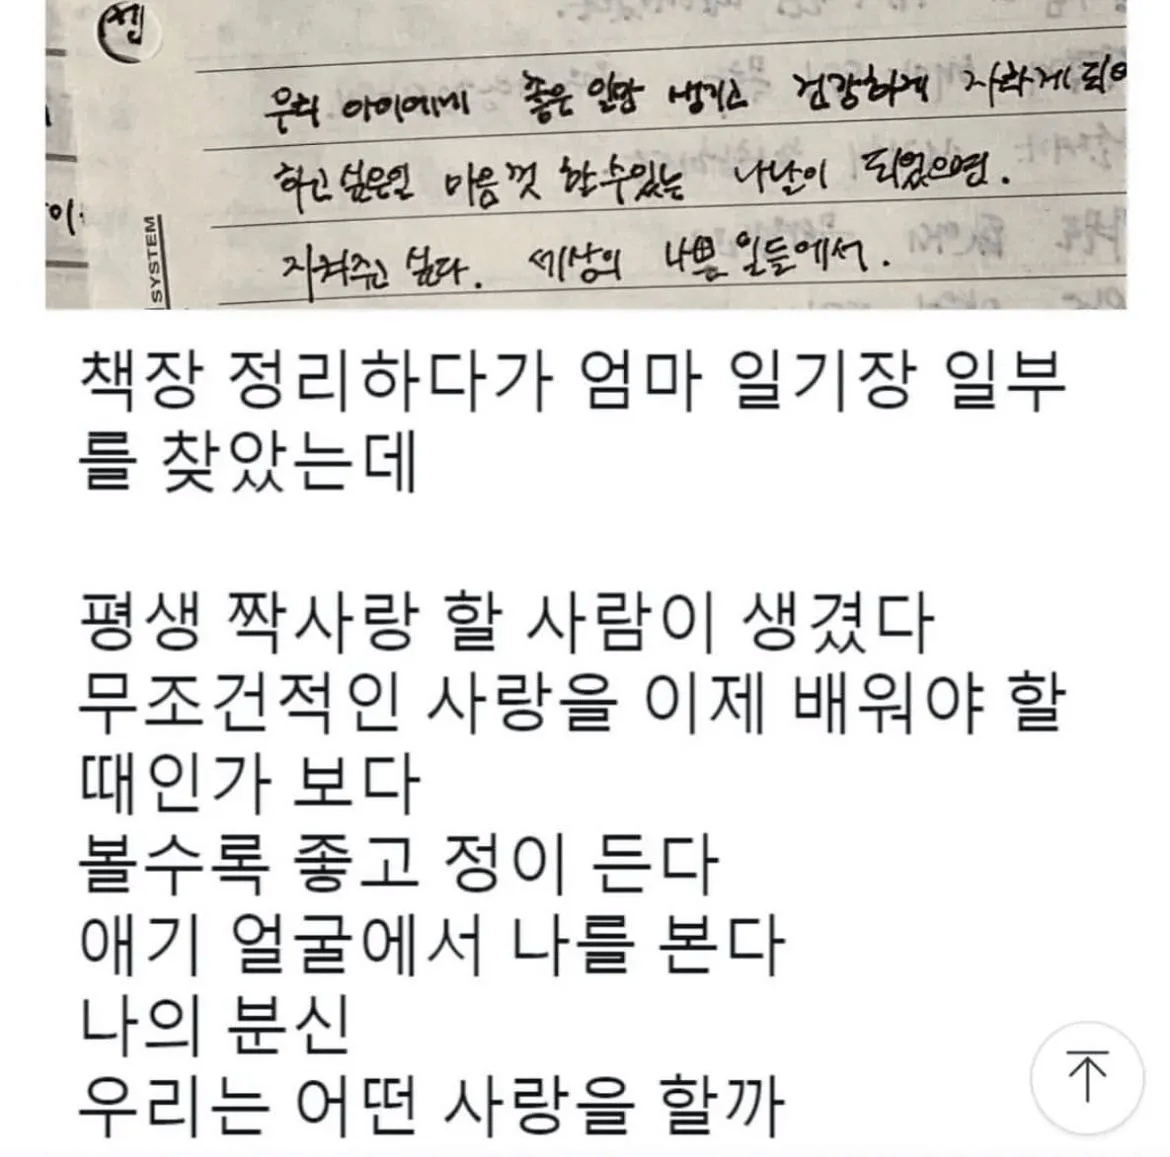 우리 아이에게 좋은 일만 생기고 건강하게 자라게 되어
하고 싶은일 마음껏 할 수 있는 나날이 되었으면.
SYSTEM
지켜주고 싶다. 세상의 나쁜 일들에서.
책장 정리하다가 엄마 일기장 일부
를 찾았는데
평생 짝사랑 할 사람이 생겼다
무조건적인 사랑을 이제 배워야 할
때인가 보다
볼수록 좋고 정이 든다
애기 얼굴에서 나를 본다
나의 분신
우리는 어떤 사랑을 할까